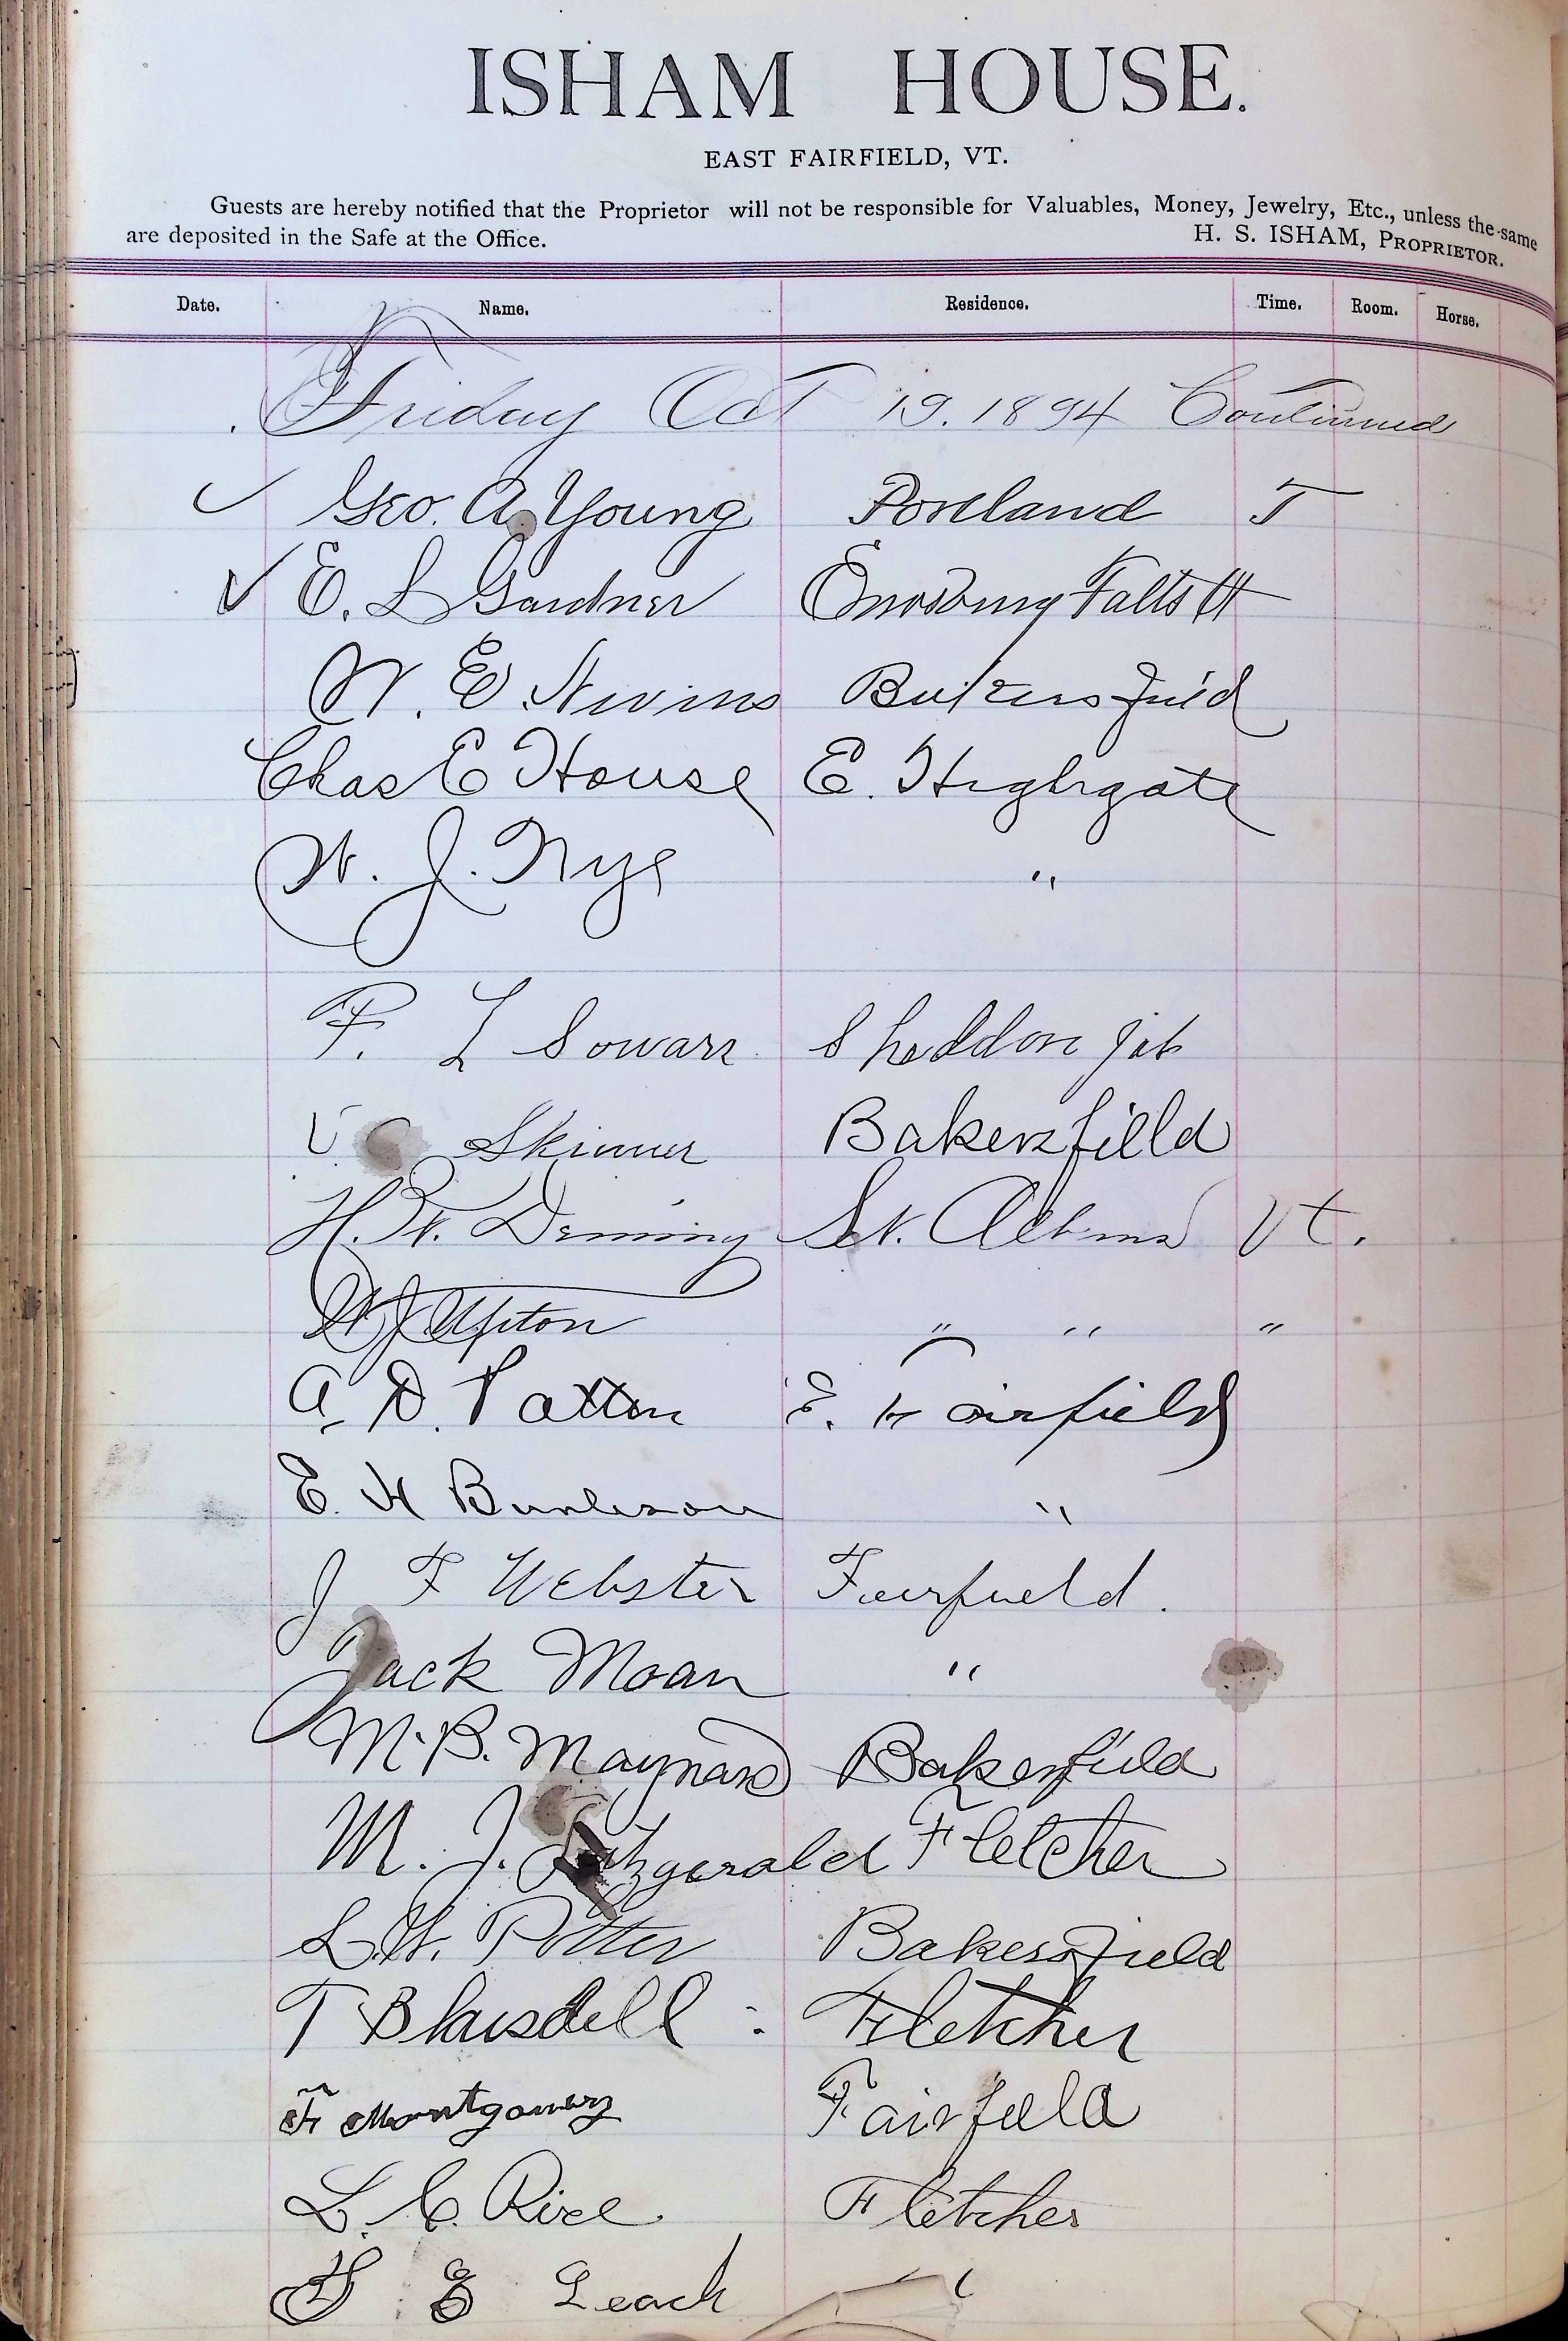 ISHAM HOUSE.
EAST FAIRFIELD, VT.
Guests are hereby notified that the Proprietor will not be responsible for Valuables, Money, Jewelry, Etc., unless the same
are deposited in the Safe at the Office. H. S. ISHAM, PROPRIETOR.
Date. Name. Residence. Time. Room. Horse.
Friday Oct 19. 1894 Continued
Geo. A. Young Portland T
E. L Gardner Enosburg Falls Vt
W. E. Nivins Bakersfield
Chas E House E. Highgate
W. J. Nye "
F. L Sowars Sheldon Jct
Skinner Bakersfield
H. W. Deming St. Albans Vt.
W J Upton " " "
A. D. Patten E. Fairfield
E. H Burleson "
J F Webster Fairfield.
Jack Moan "
M. B. Maynard Bakersfield
M. J. Fitzgerald Fletcher
L. W. Potter Bakersfield
T Blaisdell : Fletcher
F Montgomery Fairfield
L. C. Rice Fletcher
E Leach "